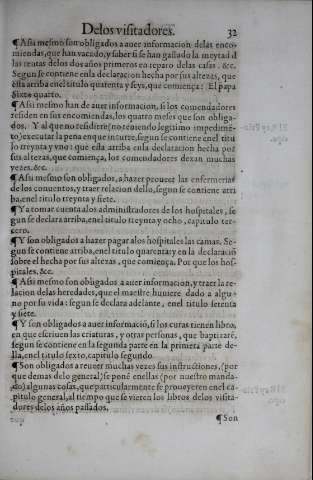 Delos visitadores. 32
¶ Assi mesmo son obligados a auer informacion delas enco-
miendas, que han vacado, y saber si se han gastado la meytad d
las rentas delos dos años primeros en reparo delas casas. &c.
Segun se contiene enla declaracion hecha por sus altezas, que
esta arriba enel titulo quarenta y seys, que comiença: El papa
Sixto quarto.
¶ Assi mesmo han de auer informacion, si los comendadores
residen en sus encomiendas, los quatro meses que son obliga-
dos. Y al que no residiere (no teniendo legitimo impedimē-
to) executar la pena en que incurre, segun se contiene enel titu
lo treynta y vno: que esta arriba enla declaracion hecha por
sus altezas, que comiença, los comendadores dexan muchas
vezes. &c.
¶ Assi mesmo son obligados, a hazer proueer las enfermerias
de los conuentos, y traer relacion dello, segun se contiene arri
ba, enel titulo treynta y siete.
¶ Y a tomar cuenta alos administradores de los hospitales, se
gun se declara arriba, enel titulo treynta y ocho, capitulo ter-
cero.
¶ Y son obligados a hazer pagar alos hospitales las camas. Se-
gun se contiene arriba, enel titulo quarenta: y en la declaraciō
sobre el hecha por sus altezas, que comiença. Por que los hos-
pitales. &c.
¶ Assi mesmo son obligados a auer informacion, y traer la re-
lacion delas heredades, que el maestre huuiere dado a algu-
no por su vida: segun se declara adelante, enel titulo setenta
y siete.
¶ Y son obligados a auer informaciō, si los curas tienen libro,
en que escriuan las criaturas, y otras personas, que baptizarē,
segun se contiene en la segunda parte en la primera parte de-
lla, enel titulo sexto, capitulo segundo.
¶ Son obligados a reueer muchas vezes sus instructiones, (por
que demas delo general) se ponē enellas (por nuestro manda-
do) algunas cosas, que particularmente se proueyeren enel ca-
pitulo general, al tiempo que se vieren los libros delos visita-
dores delos años passados.
¶ Son